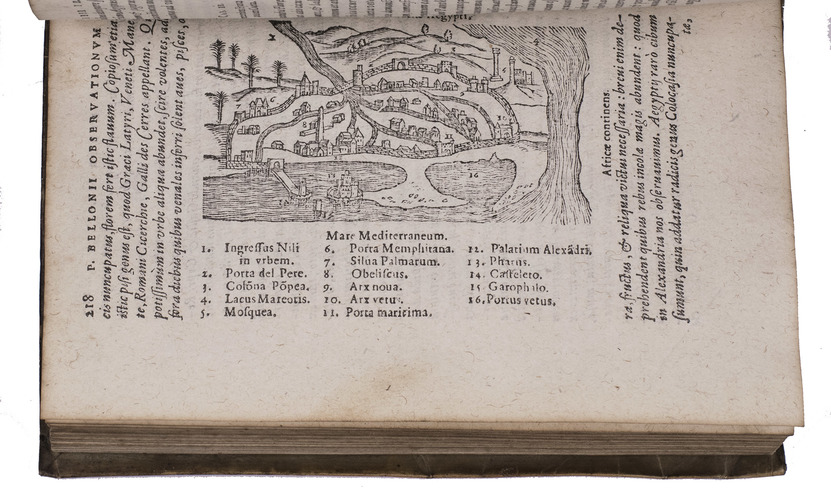 218 P. BELLONII OBSERVATIONVM
cis nuncupatus, florem fert istic flauum. Copiosum etiā
istic pisi genus est, quod Græci Latyri, Veneti Mane
te, Romani Cicerchie, Galli des Cerres appellant.
potissimum in vrbe aliqua abundet, scire volentes, ad
fora diebus quibus venales inferri solent aues, pisces, o
Ægypti.
Mare Mediterraneum.
1. Ingressus Nili
in vrbem.
2. Porta del Pere.
3. Colōna Pōpea.
4. Lacus Mareotis.
5. Mosquea.
6. Porta Memphitana.
7. Silua Palmarum.
8. Obeliscus.
9. Arx noua.
10. Arx vetus.
11. Porta maritima.
12. Palatium Alexādri.
13. Pharus.
14. Casteleto.
15 Garophilo.
16. Portus vetus.
Africæ continens.
ra, fructus, & reliqua victui necessaria: breui enim de-
prehendent quibus rebus incolæ magis abundent: quod
in Alexandria nos obseruauimus. Aegyptij raro cibum
sumunt, quin addatur radicis genus Colocasia nuncupa-
te,